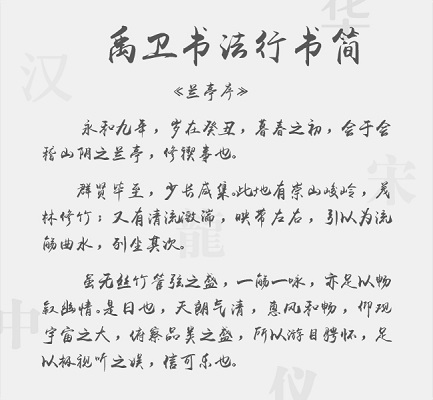 禹卫书法行书简
《兰亭序》
永和九年，岁在癸丑，暮春之初，会于会
稽山阴之兰亭，修禊事也。
群贤毕至，少长咸集。此地有崇山峻岭，茂
林修竹；又有清流激湍，映带左右，引以为流
觞曲水，列坐其次。
虽无丝竹管弦之盛，一觞一咏，亦足以畅
叙幽情。是日也，天朗气清，惠风和畅，仰观
宇宙之大，俯察品类之盛，所以游目骋怀，足
以极视听之娱，信可乐也。
华
汉
宋
龍
中
仪